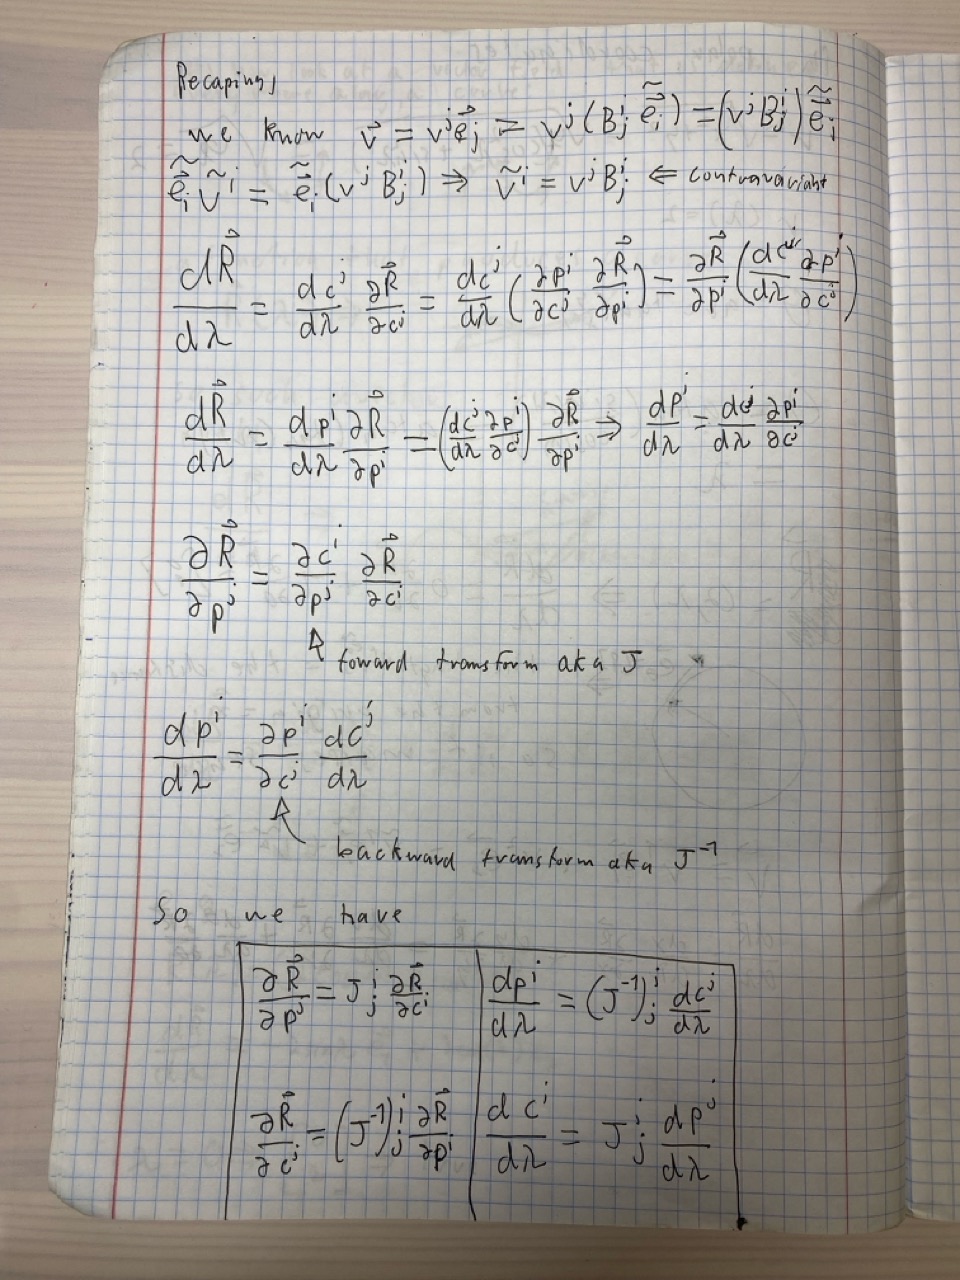 Recaping,
we know v⃗ = vʲe⃗ⱼ = vʲ(Bⁱⱼ ẽ⃗ᵢ) = (vʲBⁱⱼ)ẽ⃗ᵢ
ẽ⃗ᵢ ṽⁱ = ẽ⃗ᵢ(vʲBⁱⱼ) ⇒ ṽⁱ = vʲBⁱⱼ ⇐ contravariant
dR⃗/dλ = dcʲ/dλ ∂R⃗/∂cʲ = dcʲ/dλ (∂pⁱ/∂cʲ ∂R⃗/∂pⁱ) = ∂R⃗/∂pⁱ (dcʲ/dλ ∂pⁱ/∂cʲ)
dR⃗/dλ = dpⁱ/dλ ∂R⃗/∂pⁱ = (dcʲ/dλ ∂pⁱ/∂cʲ) ∂R⃗/∂pⁱ ⇒ dpⁱ/dλ = dcʲ/dλ ∂pⁱ/∂cʲ
∂R⃗/∂pʲ = ∂cⁱ/∂pʲ ∂R⃗/∂cⁱ
toward transform aka J
dpⁱ/dλ = ∂pⁱ/∂cʲ dcʲ/dλ
backward transform aka J⁻¹
So we have
∂R⃗/∂pʲ = Jⁱⱼ ∂R⃗/∂cⁱ | dpⁱ/dλ = (J⁻¹)ⁱⱼ dcʲ/dλ
∂R⃗/∂cʲ = (J⁻¹)ⁱⱼ ∂R⃗/∂pⁱ | dcⁱ/dλ = Jⁱⱼ dpʲ/dλ